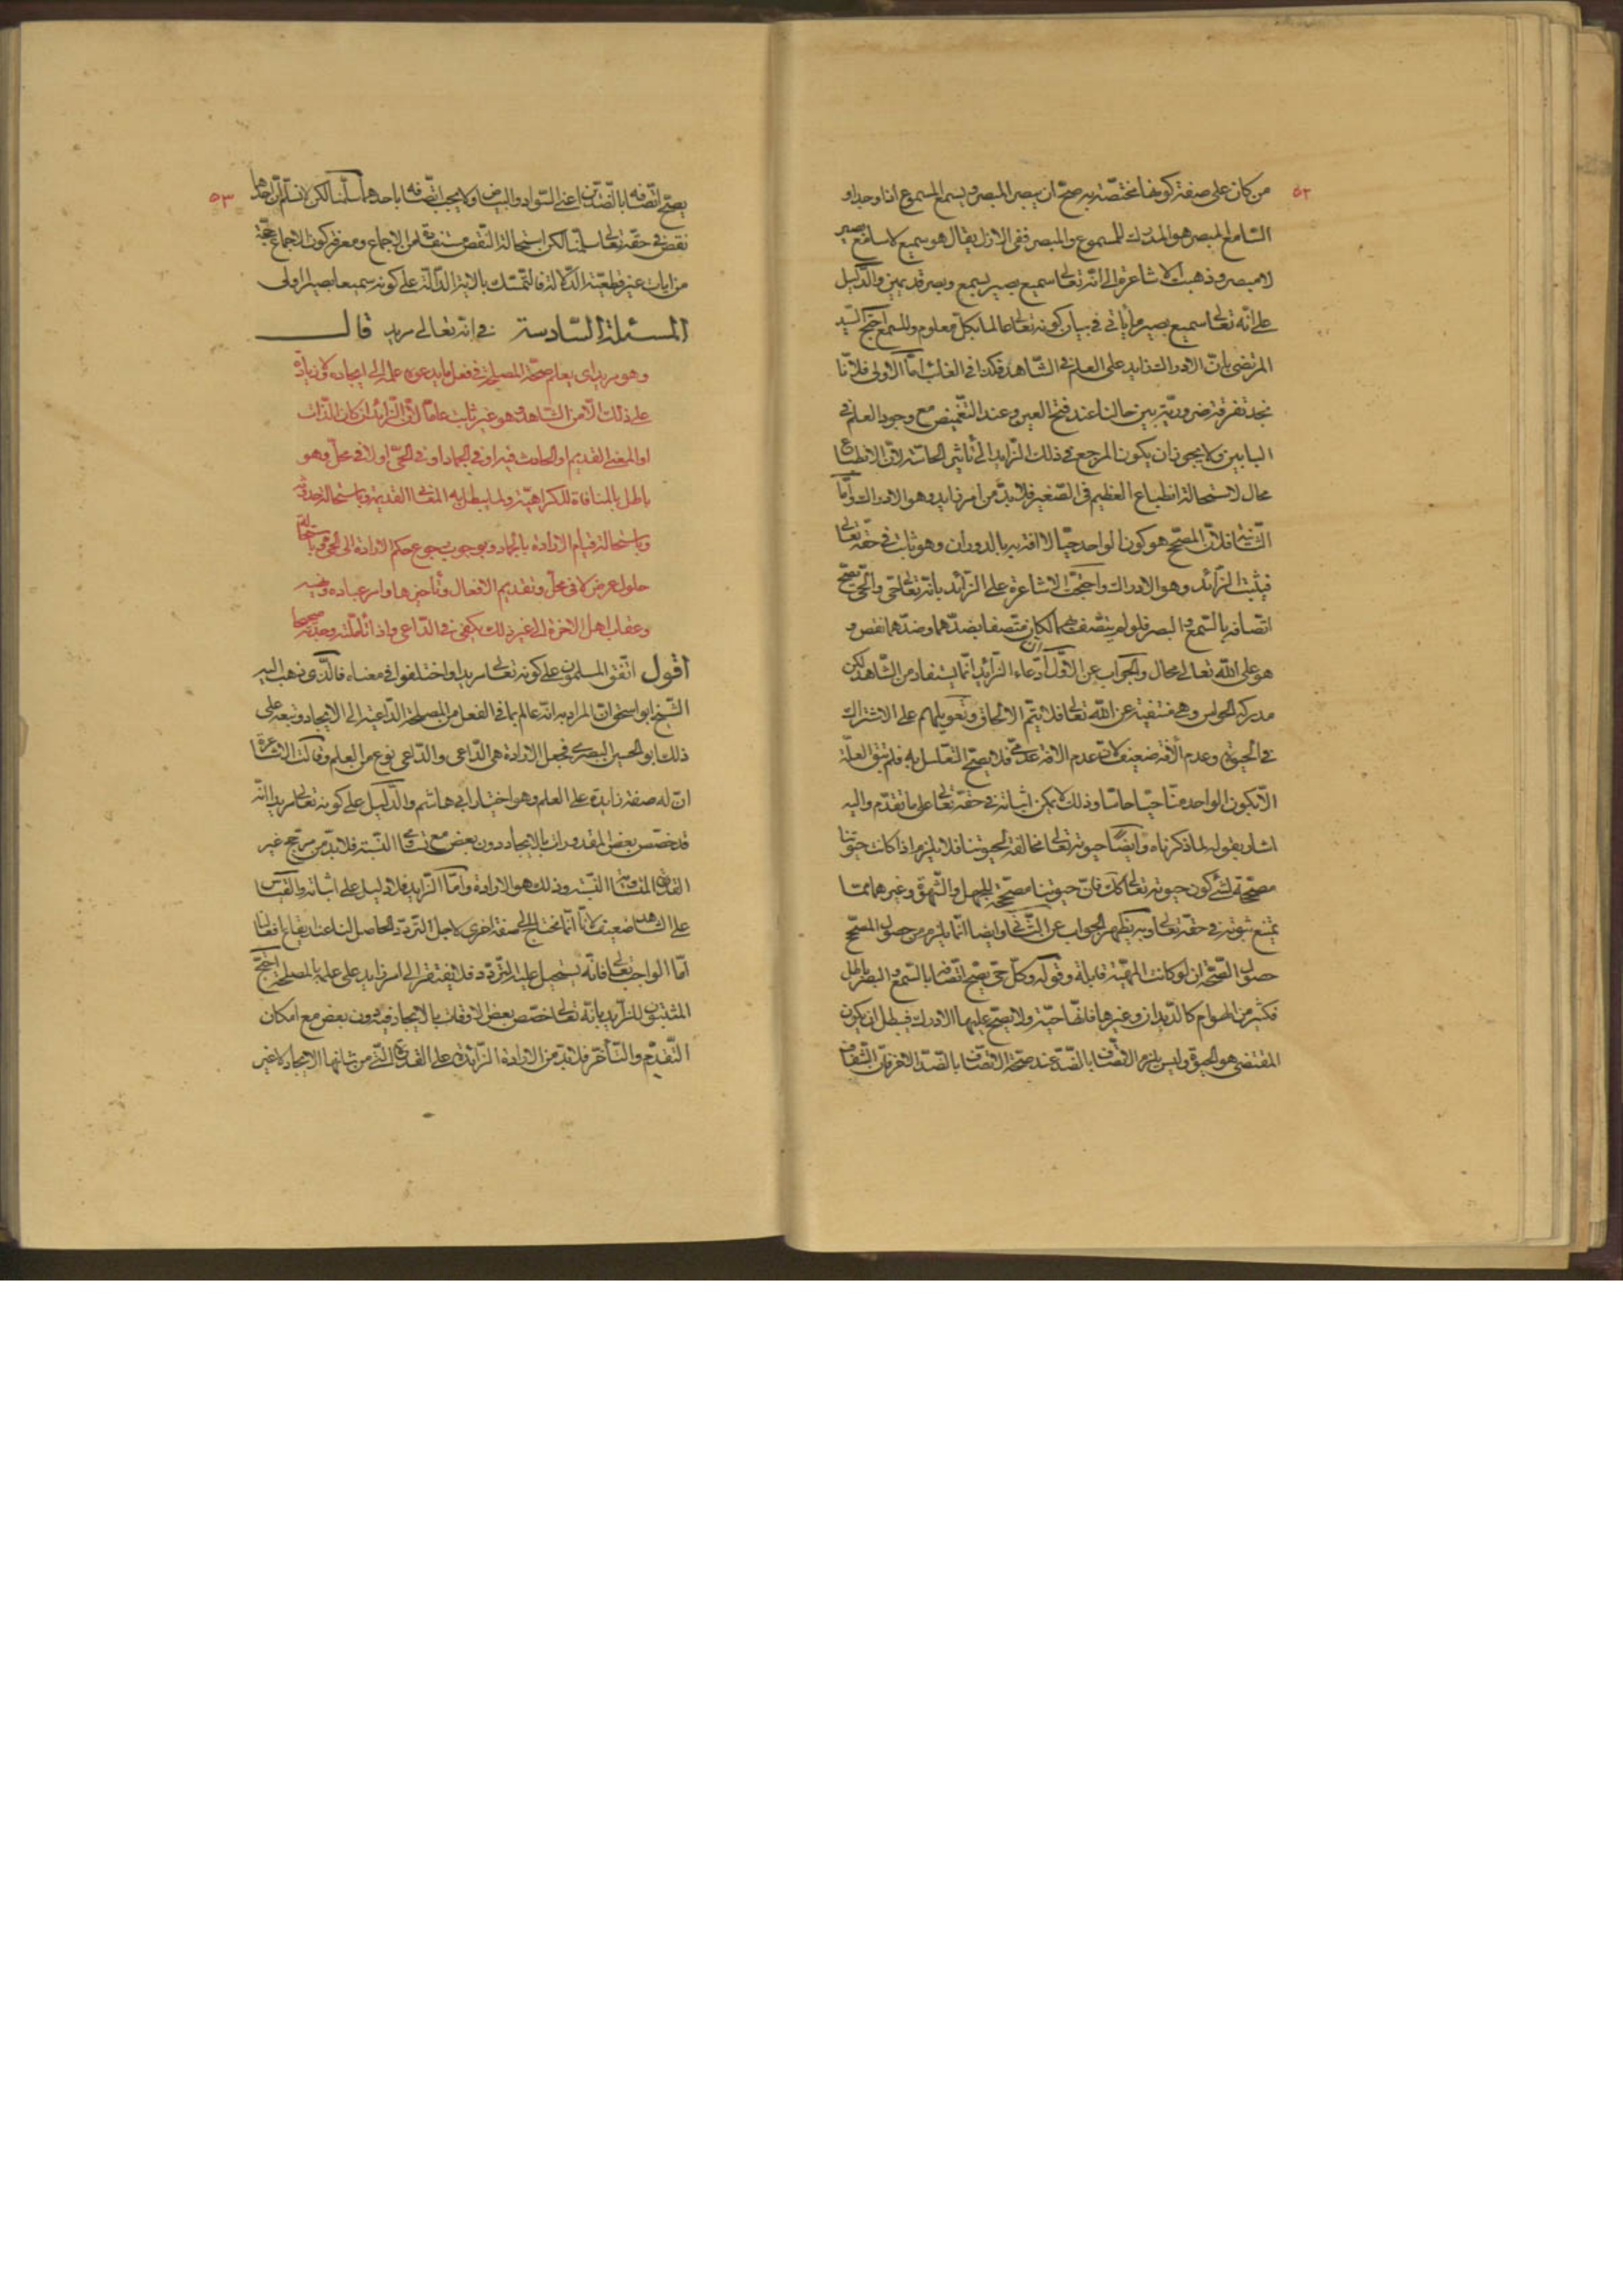 ٥٢
من كان على صفة كونها مختصّة به صحّ ان يبصر المبصر ويسمع المسموع اذا وجدا و
السّامع المبصر هو المدرك للمسموع والمبصر ففى الازل يقال هو سميع بصير لا سامع
لا مبصر وذهبت الاشاعرة الى انّه تعالى سميع بصير بسمع وبصر قديمين والدّليل
على انّه تعالى سميع بصير ما يأتى فى بيان كونه تعالى عالما بكلّ معلوم وللسمع احتجّ السّيد
المرتضى بانّ الادراك زايد على العلم فى الشّاهد فكذا فى الغائب امّا الاولى فلانّا
نجد تفرقة ضروريّة بين حالنا عند فتح العين وعند التّغميض مع وجود العلم فى
البابين ولا يجوز ان يكون المرجع فى ذلك الزّايد الى تأثير الحاسّة لانّ الانطباع
محال لاستحالة انطباع العظيم فى الصّغير فلا بدّ من امر زايد وهو الادراك وأمّا
الثّانية فلانّ المصحّح هو كون الواحد حيّا لا افة به بالدوران وهو ثابت فى حقّه تعالى
فيثبت الزّائد وهو الادراك واحتجّت الاشاعرة على الزّائد بانّه تعالى حىّ والحىّ يصحّ
اتّصافه بالسّمع والبصر فلو لم يتّصف بهما لكان متّصفا بضدّهما وضدّهما نقص و
هو على اللّه تعالى محال والجواب عن الاوّل انّ ادّعاء الزّائد انّما يستفاد من الشّاهد لكن
مدركه الحواس وهى منتفية عن اللّه تعالى فلا يتمّ الالحاق وتعويلهم على الاشتراك
فى الحيوة وعدم الأفة ضعيف لانّ عدم الافة عدمىّ فلا يصحّ التعليل به فلم تبق العلّة
الّا كون الواحد منّا حيّا حاسّا وذلك لا يمكن اثباته فى حقّه تعالى على ما تقدّم واليه
اشار بقوله لما ذكرناه وأيضًا حيوته تعالى مخالفة لحيوتنا فلا يلزم اذا كانت حيوتنا
مصحّحة لشئ كون حيوته تعالى كك فانّ حيوتنا مصحّحة للجهل والشّهوة وغيرهما ممّا
يمتنع ثبوته فى حقّه تعالى وبه يظهر الجواب عن الثّانى وايضا انّما يلزم من حصول المصحّح
حصول الصّحّة ان لو كانت المهيّة قابلة وقوله وكلّ حىّ يصحّ اتّصافه بالسّمع والبصر باطل
فكثير من الهوام كالدّيدان وغيرها فانّها حيّة ولا يصحّ عليها الادراك فبطل ان يكون
المقتضى هو الحيوة وليس يلزم الاتّصاف بالضّدّ عند صحّة الاتّصاف بالضّدّ الاخر فانّ الشّفاف
٥٣
يصحّ اتّصافه بالضّدّين اعنى السّواد والبياض ولا يجب اتّصافه باحدهما سلّمنا لكن لا نسلّم انّ احدهما
نقص فى حقّه تعالى سلّمنا لكن استحالة النّقص مستفادة من الاجماع ومعرفة كون الاجماع حجّة
من ايات غير قطعيّة الدّلالة فالتّمسّك بالاية الدّالّة على كونه سميعا بصيرا اولى
المسئلة السّادسة فى انّه تعالى مريد قال
وهو مريد اى يعلم صحّة المصلحة فى فعل ما يدعوه علمه الى ايجاده لا زيادة
على ذلك الّا من الشّاهد وهو غير ثابت عامّا لانّ الزّائد ان كان للذّات
او المعنى القديم او الحادث فيه او فى الجماد او فى الحىّ او لا فى محلّ وهو
باطل بالمنافاة للكراهيّة ولما يبطل به المعانى القديمة وباستحالة حدوثه
وباستحالة قيام الارادة بالجماد وبوجوب رجوع حكم الارادة الى الحىّ وباستحالة
حلول عرض لا فى محلّ وتقديم الافعال وتأخيرها وامر عباده ونهيه
وعقاب اهل الاخرة الى غير ذلك يكفى فيه الدّاعى واذا تأمّلته وجدته صحيحا
أقول اتّفق المسلمون على كونه تعالى مريدا واختلفوا فى معناه فالّذى ذهب اليه
الشّيخ ابو اسحق انّ المراد به انّه عالم بما فى الفعل من المصلحة الدّاعية الى الايجاد وتبعه على
ذلك ابو الحسين البصرى فجعل الارادة هى الدّاعى والدّاعى نوع من العلم وقالت الاشاعرة
انّ له صفة زايدة على العلم وهو اختيار أبى هاشم والدّليل على كونه تعالى مريدا انّه
قد خصّص بعض المقدورات بالايجاد دون بعض مع تساوى النّسبة فلا بدّ من مرجّح غير
القدرة المتساوية النّسبة وذلك هو الارادة وأمّا الزّايد فلا دليل على اثباته والقياس
على الشّاهد ضعيف لانّا انّما نحتاج الى صفة اخرى لاجل التّردّد الحاصل لنا عند ايقاع افعالنا
امّا الواجب تعالى فانّه يستحيل عليه التّردّد فلا يفتقر الى امر زايد على علمه بالمصلحة احتجّ
المثبتون للزّايد بانّه تعالى خصّص بعض الاوقات بالايجاد فيه دون بعض مع امكان
التّقدّم والتّأخّر فلا بدّ من الارادة الزّائدة على القدرة الّتى من شانها الايجاد لا غير